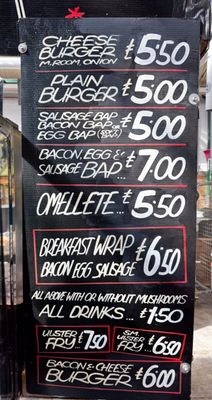 CHEESE
BURGER £5.50
M.ROOM, ONION
PLAIN
BURGER £5.00
SAUSAGE BAP
BACON BAP OR £5.00
EGG BAP
BACON, EGG &
SAUSAGE BAP... £7.00
OMELLETE... £5.50
BREAKFAST WRAP £6.50
BACON EGG SAUSAGE
ALL ABOVE WITH OR WITHOUT MUSHROOMS
ALL DRINKS... £1.50
ULSTER
FRY £7.50
SM.
ULSTER
FRY... £6.50
BACON & CHEESE
BURGER £6.00